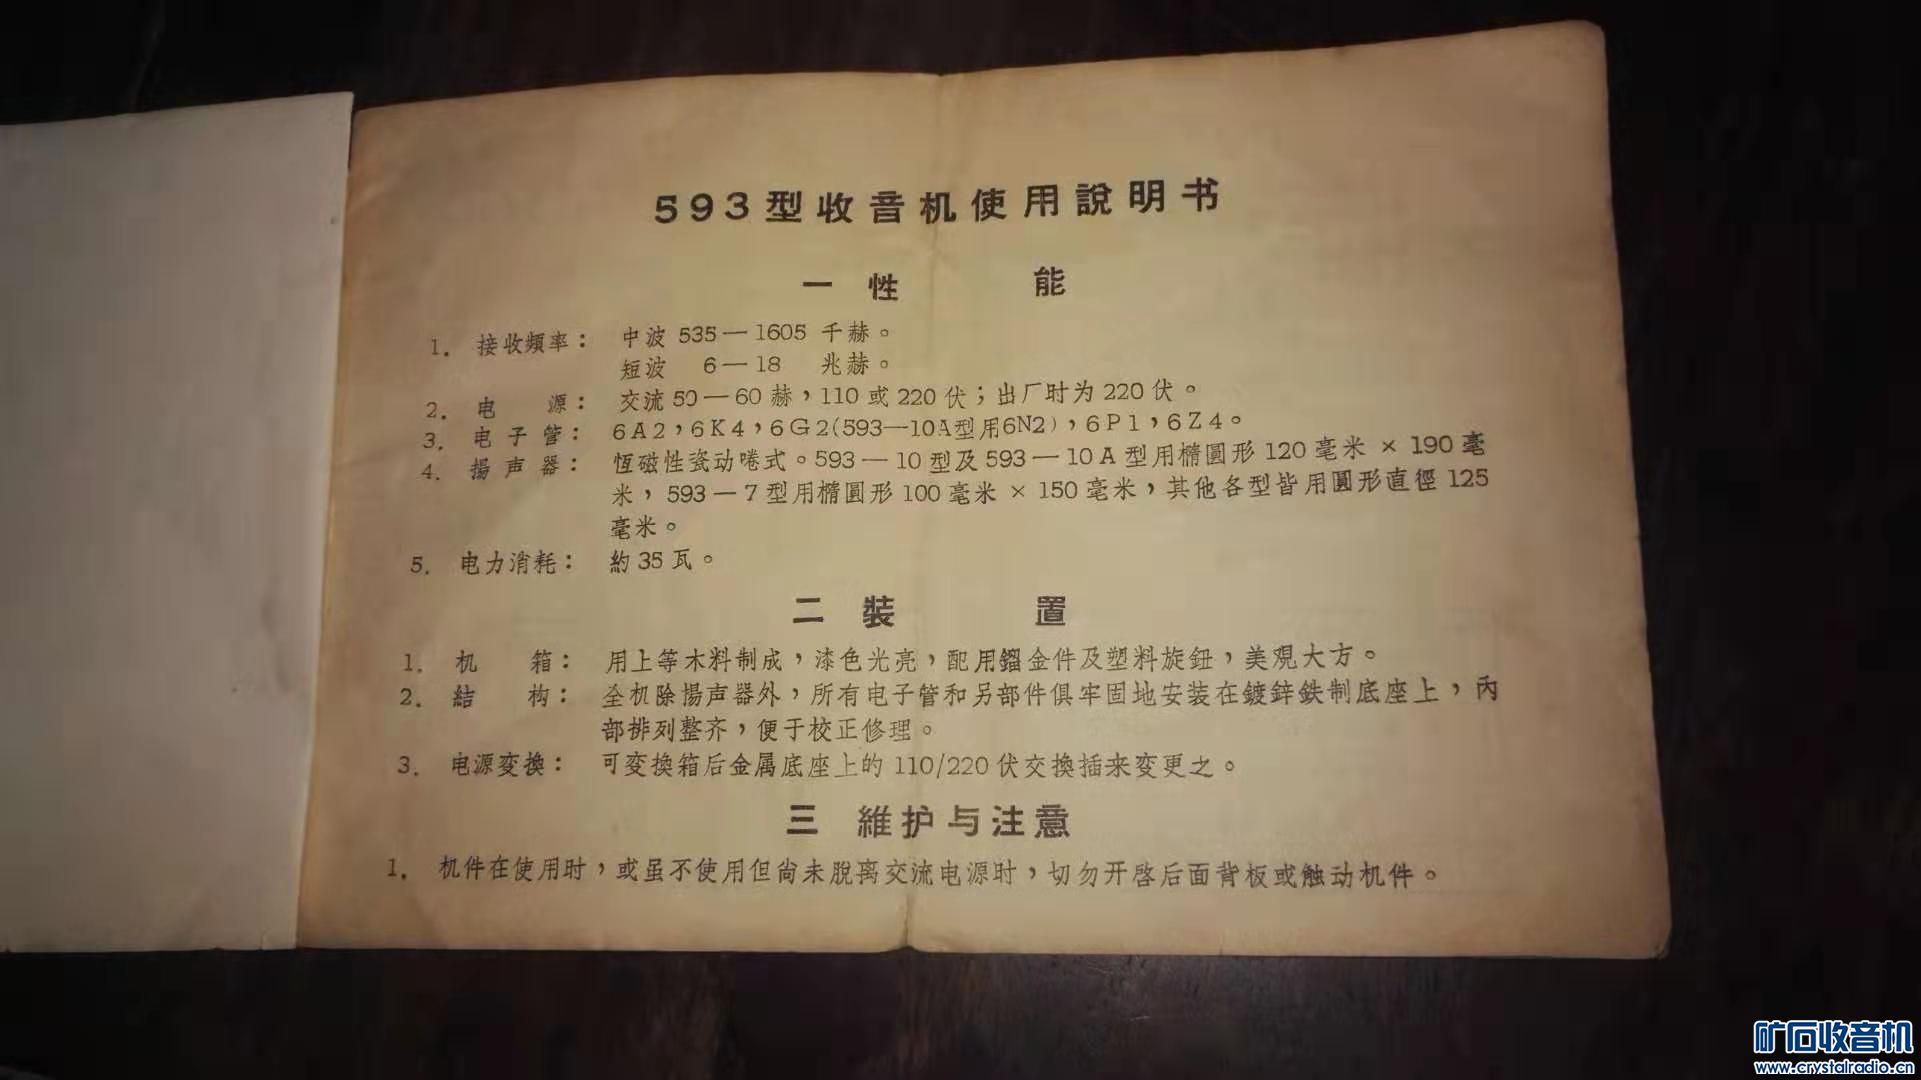 593型收音机使用說明书
一 性 能
1. 接收頻率： 中波 535—1605 千赫。
短波 6—18 兆赫。
2. 电 源： 交流 50—60 赫，110 或 220 伏；出厂时为 220 伏。
3. 电子管： 6A2，6K4，6G2(593—10A型用6N2)，6P1，6Z4。
4. 揚声器： 恆磁性瓷动啳式。593—10 型及 593—10A 型用橢圓形 120 毫米 × 190 毫
米，593—7 型用橢圓形 100 毫米 × 150 毫米，其他各型皆用圓形直徑 125
毫米。
5. 电力消耗： 約 35 瓦。
二 裝 置
1. 机 箱： 用上等木料制成，漆色光亮，配用鎦金件及塑料旋鈕，美观大方。
2. 結 构： 全机除揚声器外，所有电子管和另部件俱牢固地安装在鍍鋅鉄制底座上，內
部排列整齐，便于校正修理。
3. 电源变換： 可变換箱后金属底座上的 110/220 伏交換插来变更之。
三 維护与注意
1. 机件在使用时，或虽不使用但尚未脫离交流电源时，切勿开啓后面背板或触动机件。
矿石收音机
www.crystalradio.cn